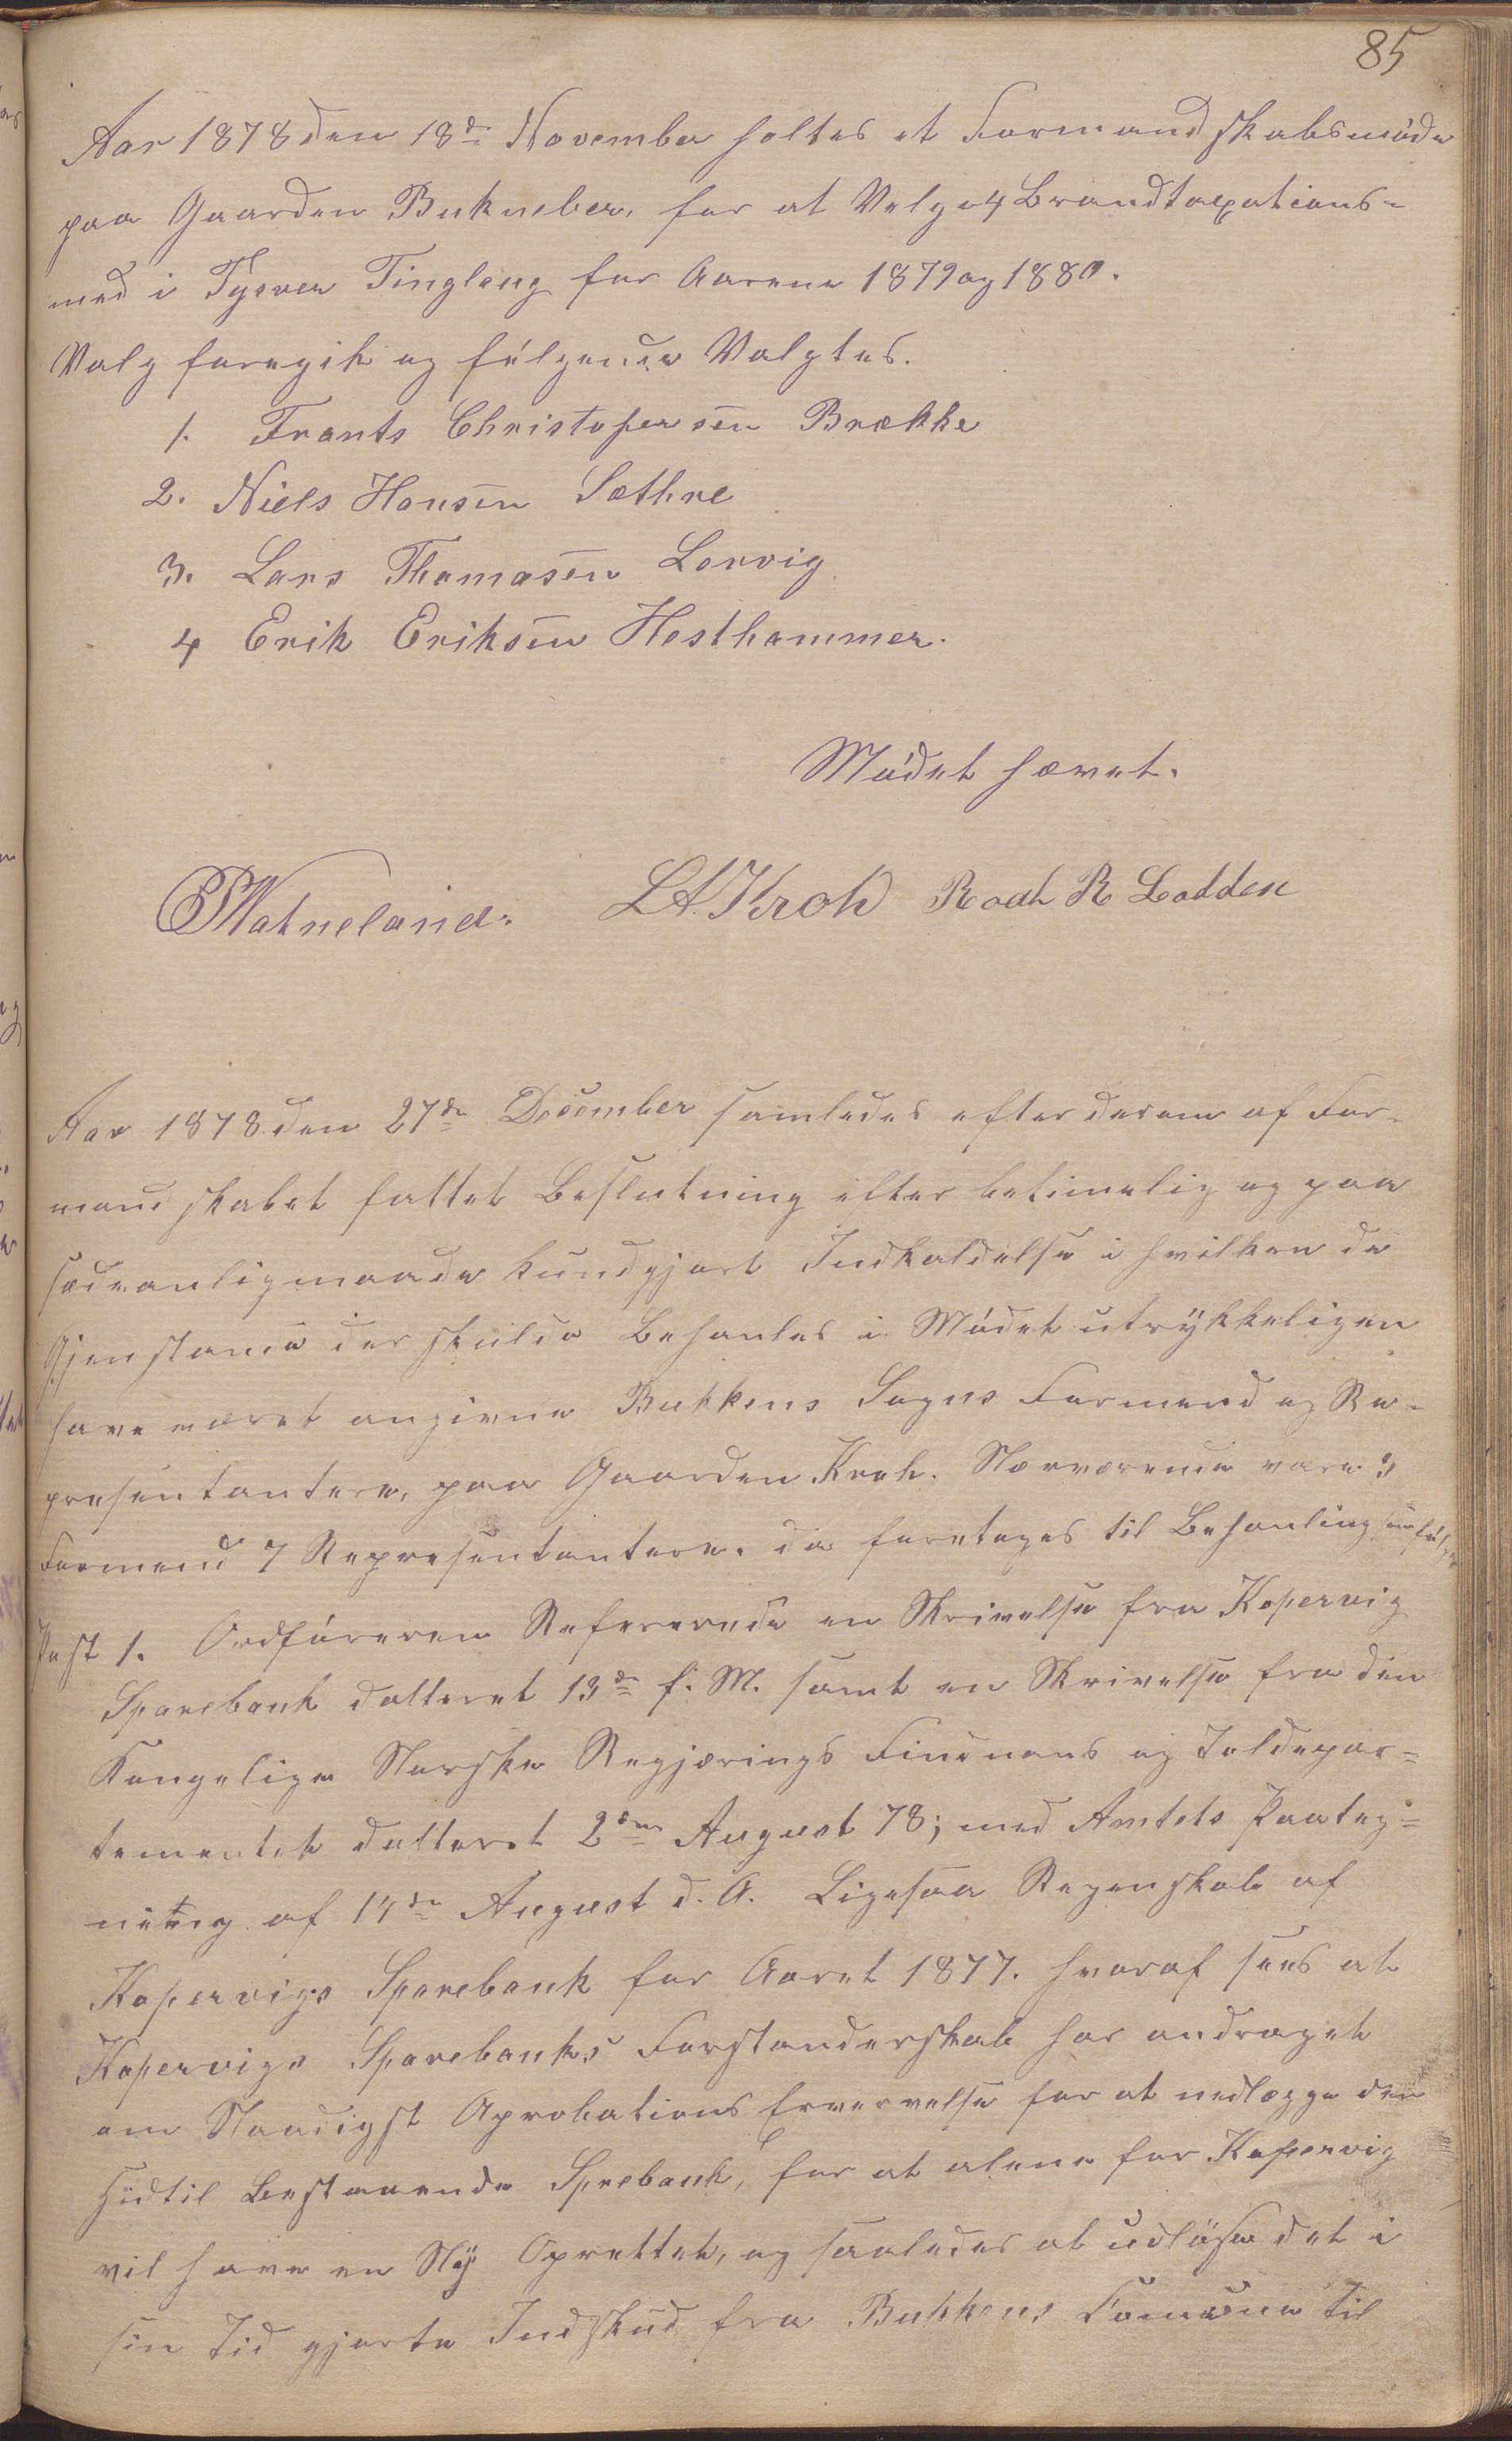 85
Aar 1878 den 18de November holtes et Formandskabsmöde
paa Gaarden Bukneber, for at Velge 4 Brandtaxations-
med i Tysver Tinglaug for Aarene 1879 og 1880.
Valg foregik og fölgende Valgtes.
1. Frants Christophersen Brække
2. Niels Hansen Sæthre
3. Lars Thomasen Lervig
4 Erik Eriksen Hesthammer.
Mödet hævet.
Watneland. L A Kroh Roah R Lodden
Aar 1878 den 27de December samledes efter derom af For-
mandskabet fattet Beslutning efter betimelig og paa
sædvanligmaade kundgjort Indkaldelse i hvilken de
Gjenstande der skulde Behanles i Mödet utrykkeligen
have været angivne Bukkens Sogns Formænd og Re-
presentantere, paa Gaarden Kroh. Nærværende vare 3
Formænd 7 Representantere. da foretages til Behanling som fölger
Post 1. Ordföreren Refererede en Skrivelse fra Kopervig
Sparebank datteret 13de f. M. samt en Skrivelse fra den
Kongelige Norske Regjærings Finsnans og Toldepar=
tementet datteret 2den August 78; med Amtets Paateg=
ning af 14de August d. A. Ligesaa Regenskab af
Kopervigs Sparebank for Aaret 1877. hvoraf sees at
Kopervigs Sparebanks Forstanderskab har andraget
om Naadigst Aprobations Ervervelse for at nedlægge den
hidtil Bestaaende Sprebank, for at alene for Kopervig
vil have en Ny Oprettet, og saaledes at udlöse det i
sin Tid gjorte Indskud fra Bukkens Comune til